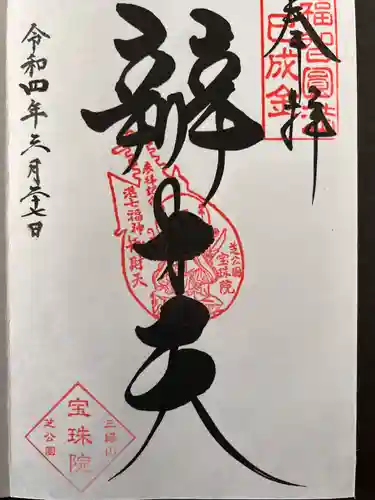 奉拝
福智圓満
巳成金
辨才天
港七福神
弁財天
芝公園
宝珠院
令和四年三月二十七日
三縁山
宝珠院
芝公園